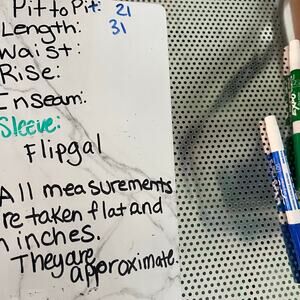 Pit to Pit: 21
Length: 31
Waist:
Rise:
Inseam:
Sleeve:
Flipgal
All measurements
are taken flat and
in inches.
They are
approximate.
EXPO